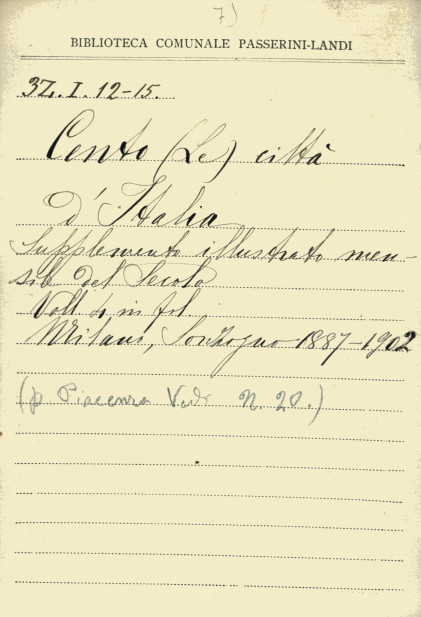 7)
BIBLIOTECA COMUNALE PASSERINI-LANDI
3Z. I. 12-15.
Cento (Le) città
d'Italia
Supplemento illustrato men-
sile del Secolo
Voll. 4 in fol
Milano, Sonzogno 1887-1902
(p Piacenza Vedi N. 20.)